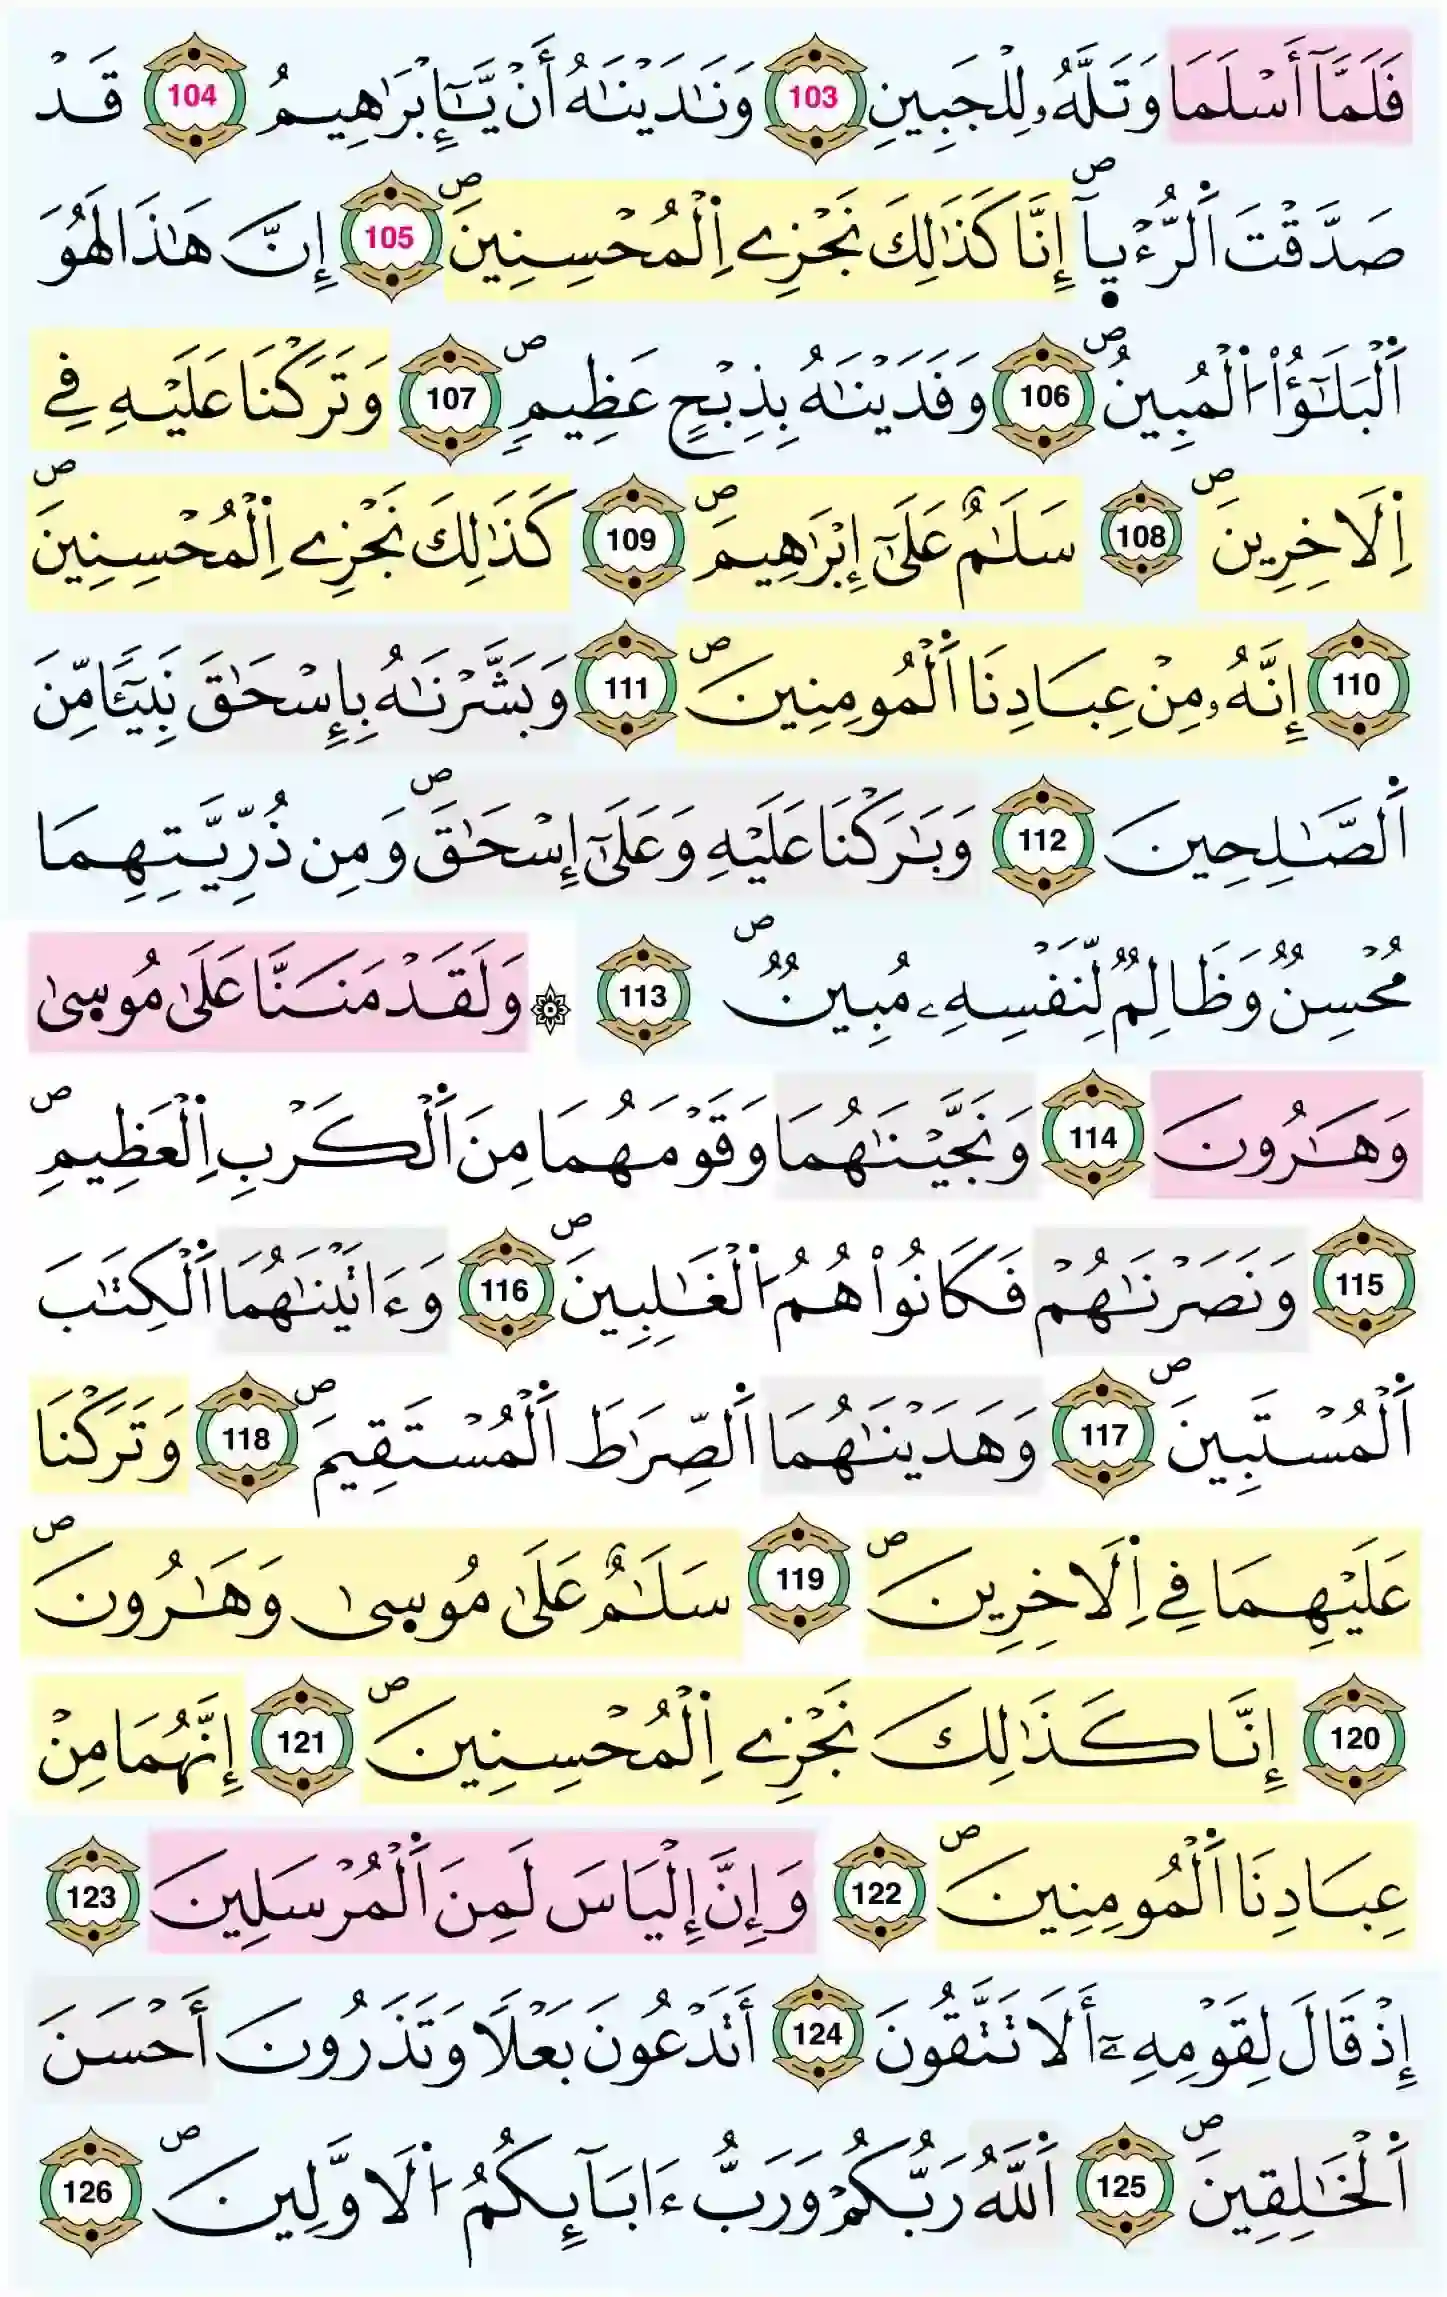 فَلَمَّآ أَسْلَمَا وَتَلَّهُۥ لِلْجَبِينِ 103 وَنَٰدَيْنَٰهُ أَنْ يَّـٰٓإِبْرَٰهِيمُ 104 قَدْ
صَدَّقْتَ اَ۬لرُّءْي۪آ ۖ إِنَّا كَذَٰلِكَ نَجْزِے اِ۬لْمُحْسِنِينَ ۖ 105 إِنَّ هَٰذَا لَهُوَ
اَ۬لْبَلَٰٓؤُاْ اُ۬لْمُبِينُ ۖ 106 وَفَدَيْنَٰهُ بِذِبْحٍ عَظِيمٍ ۖ 107 وَتَرَكْنَا عَلَيْهِ فِے
اِ۬لَاخِرِينَ ۖ 108 سَلَٰمٌ عَلَىٰٓ إِبْرَٰهِيمَ ۖ 109 كَذَٰلِكَ نَجْزِے اِ۬لْمُحْسِنِينَ ۖ
110 إِنَّهُۥ مِنْ عِبَادِنَا اَ۬لْمُومِنِينَ ۖ 111 وَبَشَّرْنَٰهُ بِإِسْحَٰقَ نَبِيٓـٔاً مِّنَ
اَ۬لصَّٰلِحِينَ 112 وَبَٰرَكْنَا عَلَيْهِ وَعَلَىٰٓ إِسْحَٰقَ ۖ وَمِن ذُرِّيَّتِهِمَا
مُحْسِنٌ وَظَالِمٌ لِّنَفْسِهِۦ مُبِينٌ ۖ 113 ۞ وَلَقَدْ مَنَنَّا عَلَىٰ مُوسۭىٰ
وَهَٰرُونَ 114 وَنَجَّيْنَٰهُمَا وَقَوْمَهُمَا مِنَ اَ۬لْكَرْبِ اِ۬لْعَظِيمِ ۖ
115 وَنَصَرْنَٰهُمْ فَكَانُواْ هُمُ اُ۬لْغَٰلِبِينَ ۖ 116 وَءَاتَيْنَٰهُمَا اَ۬لْكِتَٰبَ
اَ۬لْمُسْتَبِينَ ۖ 117 وَهَدَيْنَٰهُمَا اَ۬لصِّرَٰطَ اَ۬لْمُسْتَقِيمَ ۖ 118 وَتَرَكْنَا
عَلَيْهِمَا فِے اِ۬لَاخِرِينَ ۖ 119 سَلَٰمٌ عَلَىٰ مُوسۭىٰ وَهَٰرُونَ ۖ
120 إِنَّا كَذَٰلِكَ نَجْزِے اِ۬لْمُحْسِنِينَ ۖ 121 إِنَّهُمَا مِنْ
عِبَادِنَا اَ۬لْمُومِنِينَ ۖ 122 وَإِنَّ إِلْيَاسَ لَمِنَ اَ۬لْمُرْسَلِينَ 123
إِذْ قَالَ لِقَوْمِهِۦٓ أَلَا تَتَّقُونَ 124 أَتَدْعُونَ بَعْلًا وَتَذَرُونَ أَحْسَنَ
اَ۬لْخَٰلِقِينَ ۖ 125 اَ۬للَّهُ رَبُّكُمْ وَرَبُّ ءَابَآئِكُمُ اُ۬لَاوَّلِينَ ۖ 126